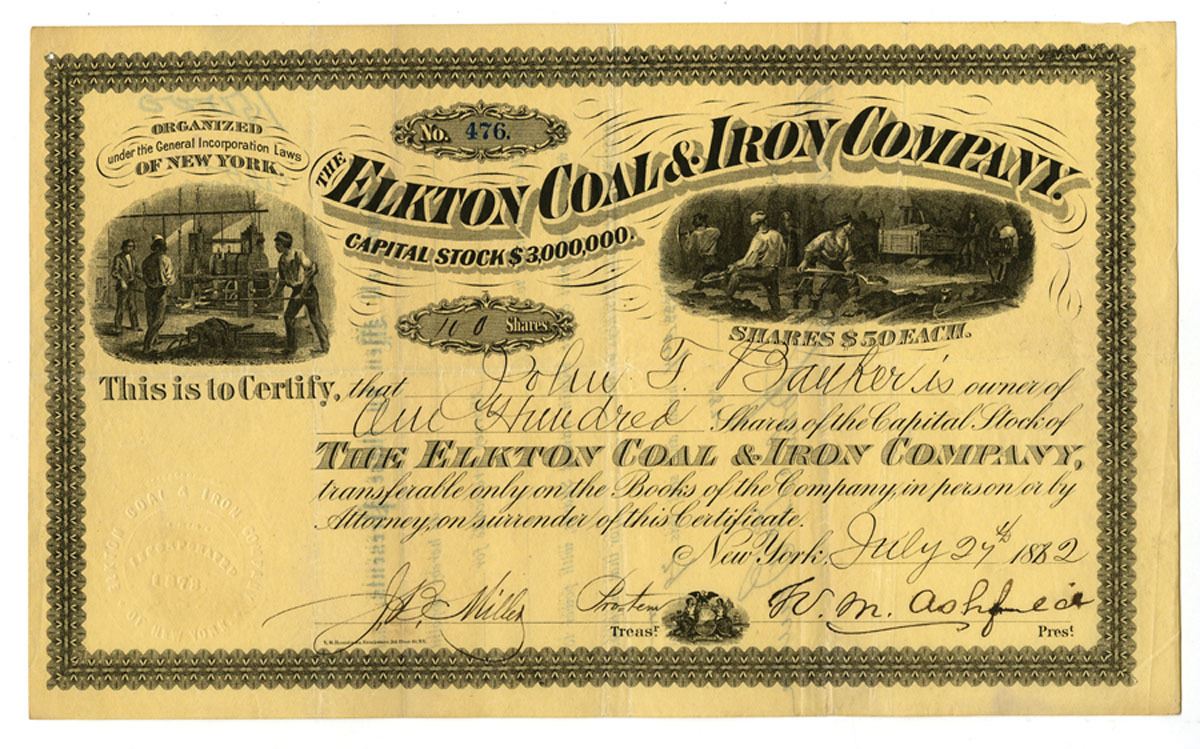 ORGANIZED
under the General Incorporation Laws
OF NEW YORK.
No. 476.
THE ELKTON COAL & IRON COMPANY.
CAPITAL STOCK $3,000,000.
100 Shares
SHARES $50 EACH.
This is to Certify, that John T. Banker is owner of
One Hundred Shares of the Capital Stock of
THE ELKTON COAL & IRON COMPANY,
transferable only on the Books of the Company, in person or by
Attorney, on surrender of this Certificate.
New York, July 27th 1882
J.P. Miller Pro tem Treast.
W. M. Prest.
ELKTON COAL & IRON COMPANY
INCORPORATED
1873
OF NEW YORK